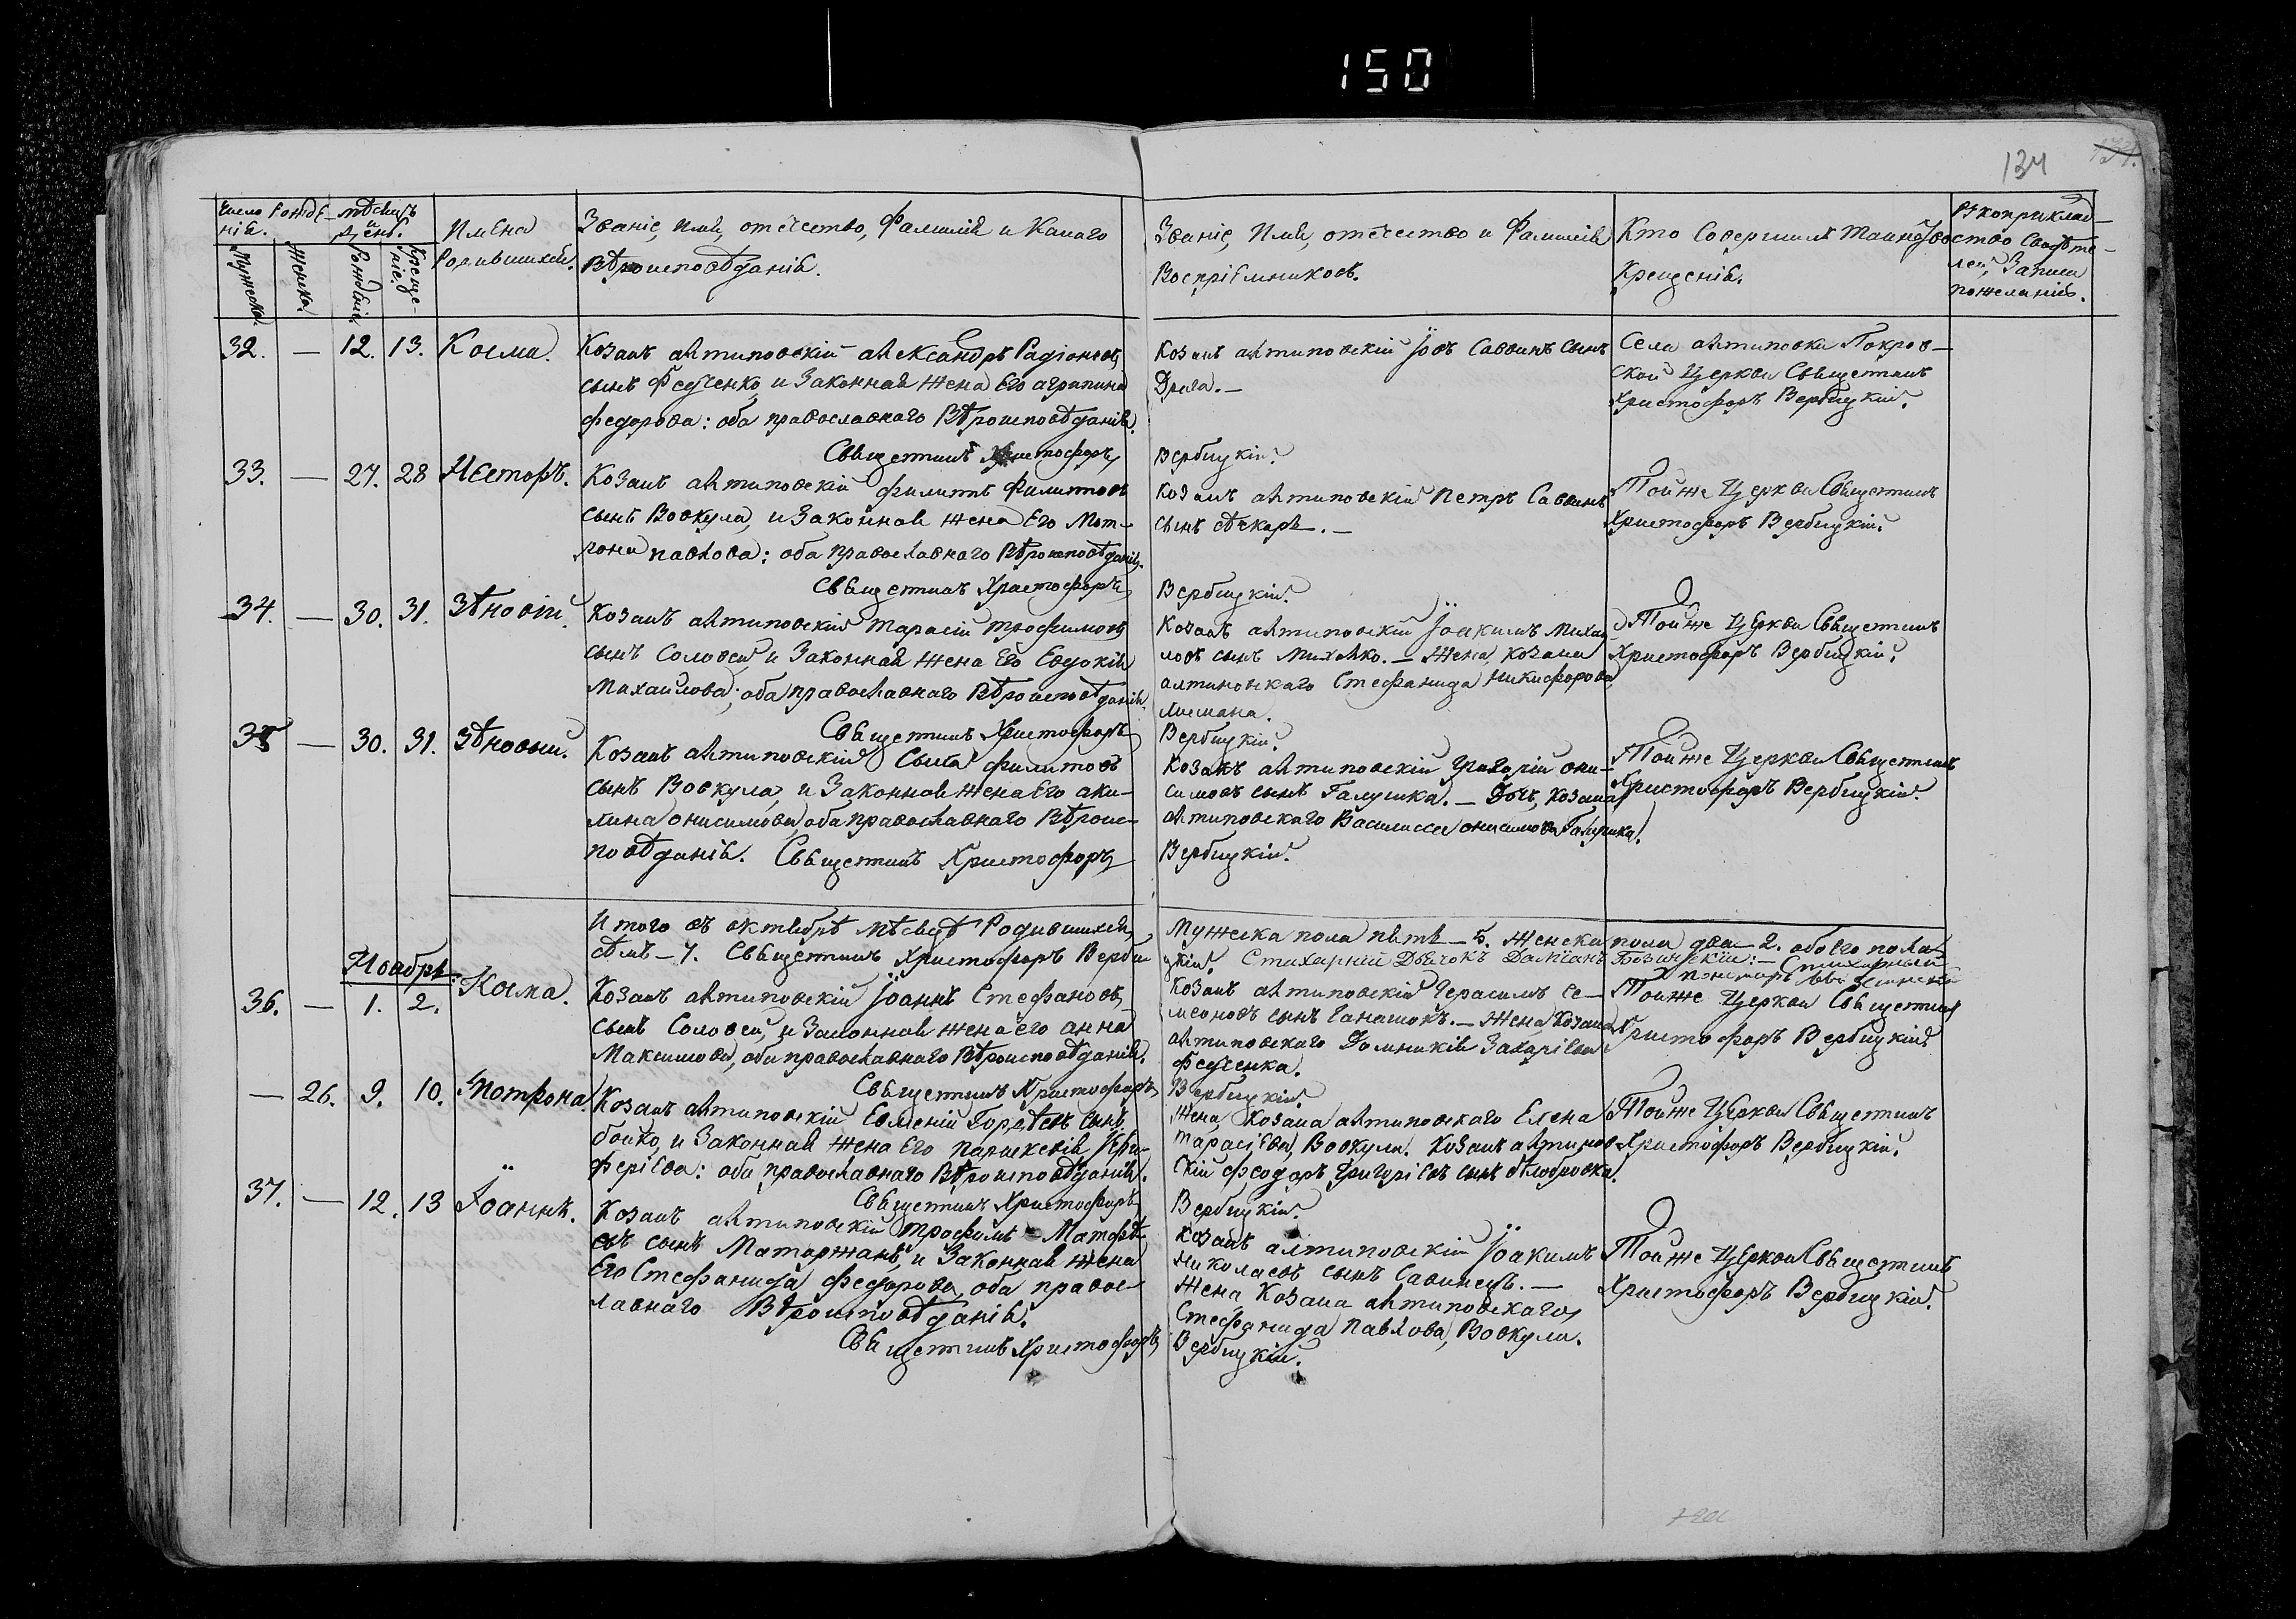 150
134
Число Рожде-
нія.
Мѣсяцъ
и
День.
Мужеска.
Женска.
Рожденія
Креще-
нія.
Имена
Родившихся.
Званіе, Имя, отечество, Фамилія и Какого
Вѣроисповѣданія.
Званіе, Имя, отечество и Фамилія
Воспріемниковъ.
Кто Совершилъ Таинство
Крещенія.
Рукоприклад-
ство Свидѣте-
лей Записи
пожеланію.
32. — 12. 13. Косма.
Козакъ антиповскій Александръ Радіоновъ
сынъ Федченко, и Законная жена Его агрипина
федорова: оба православнаго Вѣроисповѣданія.
Священникъ Христофоръ
Козакъ антиповскій Іовъ Саввинъ сынъ
Драга. —
Вербицкій.
Села антиповки Покров-
ской Церкви Священникъ
Христофоръ Вербицкій.
33. — 27. 28 Несторъ.
Козакъ антиповскій филиппъ Филиповъ
сынъ Вовкула, и Законная жена Его Мот-
рона павлова: оба православнаго Вѣроисповѣданія.
Священникъ Христофоръ
Козакъ антиповскій Петръ Саввинъ
сынъ
Вербицкій.
Тойже Церкви Священникъ
Христофоръ Вербицкій.
34. — 30. 31. Зѣновій.
Козакъ антиповскій Тарасій Трофимовъ
сынъ Соловей, и Законная жена Его Евдокія
Михайлова; оба православнаго Вѣроисповѣданія.
Священникъ Христофоръ
Козакъ антиповскій Іоакимъ Михаи-
ловъ сынъ Михалко. — Жена, козака
антиповскаго Стефанида Никифорова,
Вербицкій.
Тойже Церкви Священникъ
Христофоръ Вербицкій.
35 — 30. 31. Зѣновій.
Козакъ антиповскій Сысой филиповъ
сынъ Вовкула, и Законная жена Его аки-
лина онисимова, оба православнаго Вѣроис-
повѣданія. Священникъ Христофоръ
Козакъ антиповскій Григорій они-
симовъ сынъ Галушка. — Дочь, козака
антиповскаго Василисса онисимова Галушка.
Вербицкій.
Тойже Церкви Священникъ
Христофоръ Вербицкій.
Итого въ октябрѣ мѣсяцѣ Родившихся,
Мужеска пола пять — 5. Женска пола два — 2. обоего пола
сѣмъ — 7. Священникъ Христофоръ Верби
цкій. Стихарній Дьячокъ Даміанъ
Ноября.
36. — 1. 2. Косма.
Козакъ антиповскій Іоаннъ Стефановъ,
сынъ Соловей, и Законная жена его анна
Максимова, оба православнаго Вѣроисповѣданія.
Священникъ Христофоръ
Козакъ антиповскій Герасимъ Се-
меоновъ сынъ Ганашокъ. — Жена, Козака
антиповскаго Домникія Захаріева
Федченка.
Вербицкій.
Тойже Церкви Священникъ
Христофоръ Вербицкій.
— 26. 9. 10. Мотрона.
Козакъ антиповскій Евменій Гордѣевъ сынъ
бойко, и Законная жена Его Параскевія
оба православнаго Вѣроисповѣданія.
Священникъ Христофоръ
Жена, Козака антиповскаго Елена
Тарасіева, Вовкула. Козакъ антипов-
скій феодоръ Григоріевъ сынъ
Вербицкій.
Тойже Церкви Священникъ
Христофоръ Вербицкій.
37. — 12. 13 Іоаннъ.
Козакъ антиповскій Трофимъ Матфѣ-
евъ сынъ Матаржанъ, и Законная жена
Его Стефанида федорова, оба правос-
лавнаго Вѣроисповѣданія.
Священникъ Христофоръ
Козакъ антиповскій Іоакимъ
Николаевъ сынъ Савинецъ. —
Жена Козака антиповскаго,
Стефанида Павлова, Вовкула.
Вербицкій.
Тойже Церкви Священникъ
Христофоръ Вербицкій.